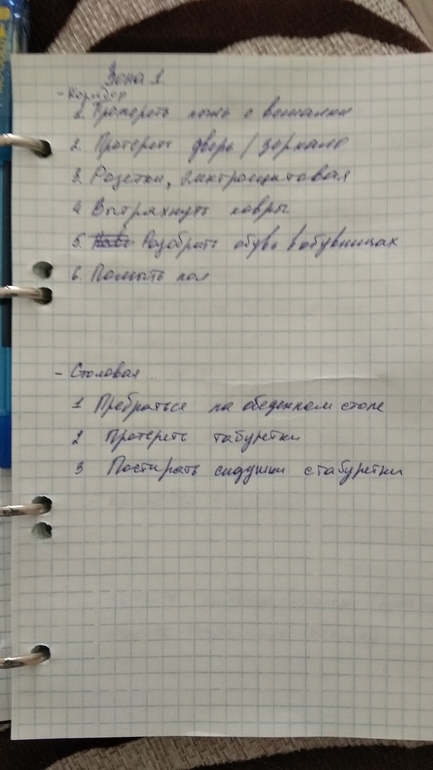 Зона 1
- Коридор
1. Протереть пыль с вешалки
2. Протереть дверь / зеркало
3. Розетки, электрощитовая
4. Вытряхнуть ковры
5. Разобрать обувь в обувницах
6. Помыть пол
- Столовая
1 Прибраться на обеденном столе
2 Протереть табуретки
3 Постирать сидушки с табуретки